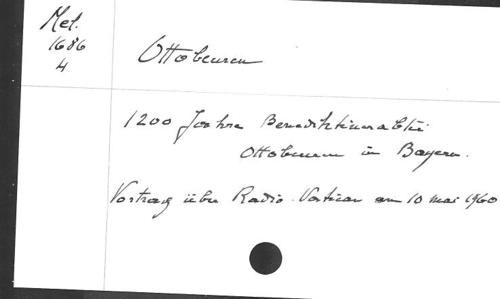 Mel.
1686
4.
Ottobeuren
1200 Jahre Benediktinerabtei
Ottobeuren in Bayern.
Vortrag über Radio-Vatican am 10 mai 1960